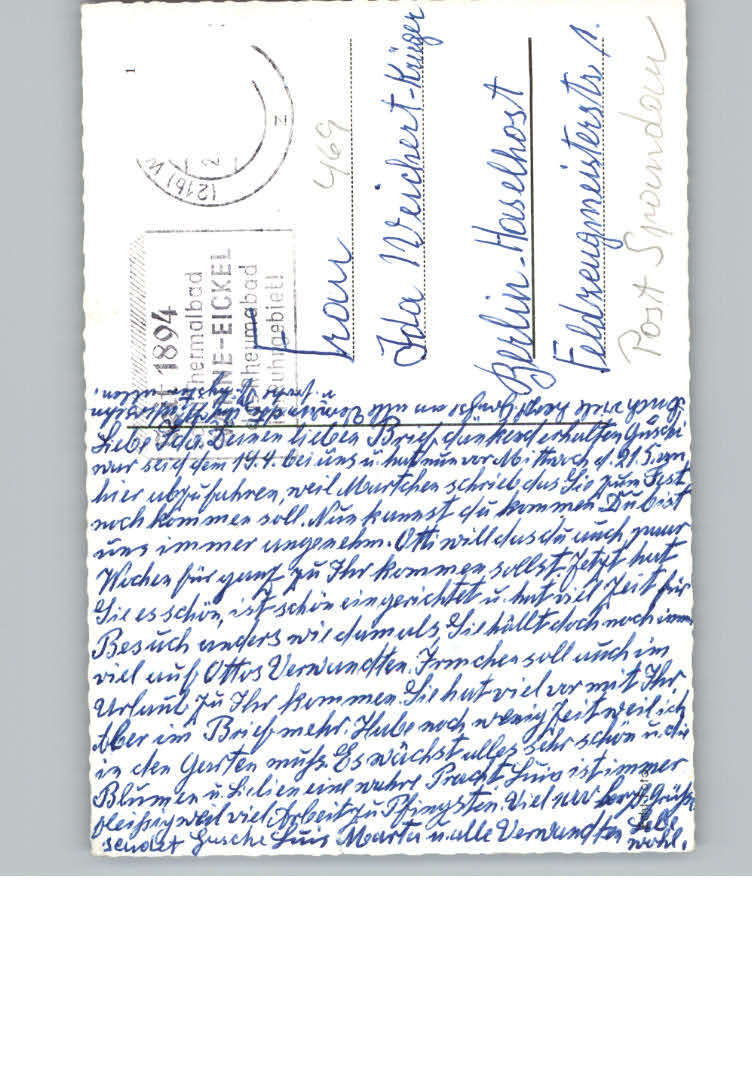 SEIT 1894
Thermalbad
WANNE-EICKEL
Rheumabad
Ruhrgebiet!
(21b) W
2
z
1
469
Frau
Ida Weichert-Krüger
Berlin-Haselhost
Feldzeugmeisterstr. 1.
Post Spandau
Liebe Ida. Deinen lieben Brief dankend erhalten Guschi
war seid dem 19.4. bei uns u. hat nun vor Mittwoch d. 21.5. von
hier abzufahren, weil Martchen schrieb das Sie zum Fest
noch kommen soll. Nun kannst du kommen Du bist
uns immer angenehm. Otti will das du auch paar
Wochen für ganz zu Ihr kommen sollst Jetzt hat
Sie es schön, ist schön eingerichtet u. hat viel Zeit für
Besuch anders wie damals, Sie hällt doch noch imm
viel auf Ottos Verwandten. Irmchen soll auch im
Urlaub zu Ihr kommen. Sie hat viel vor mit Ihr.
Aber im Brief mehr. Habe noch wenig Zeit weil ich
in den Garten muß. Es wächst alles sehr schön u. die
Blumen u. Lilien eine wahre Pracht. Luis ist immer
fleißig weil viel Arbeit zu Pfingsten. Viel herzl. Grüße
sendet Gusche Luis Marta u. alle Verwandten Lebe
wohl.